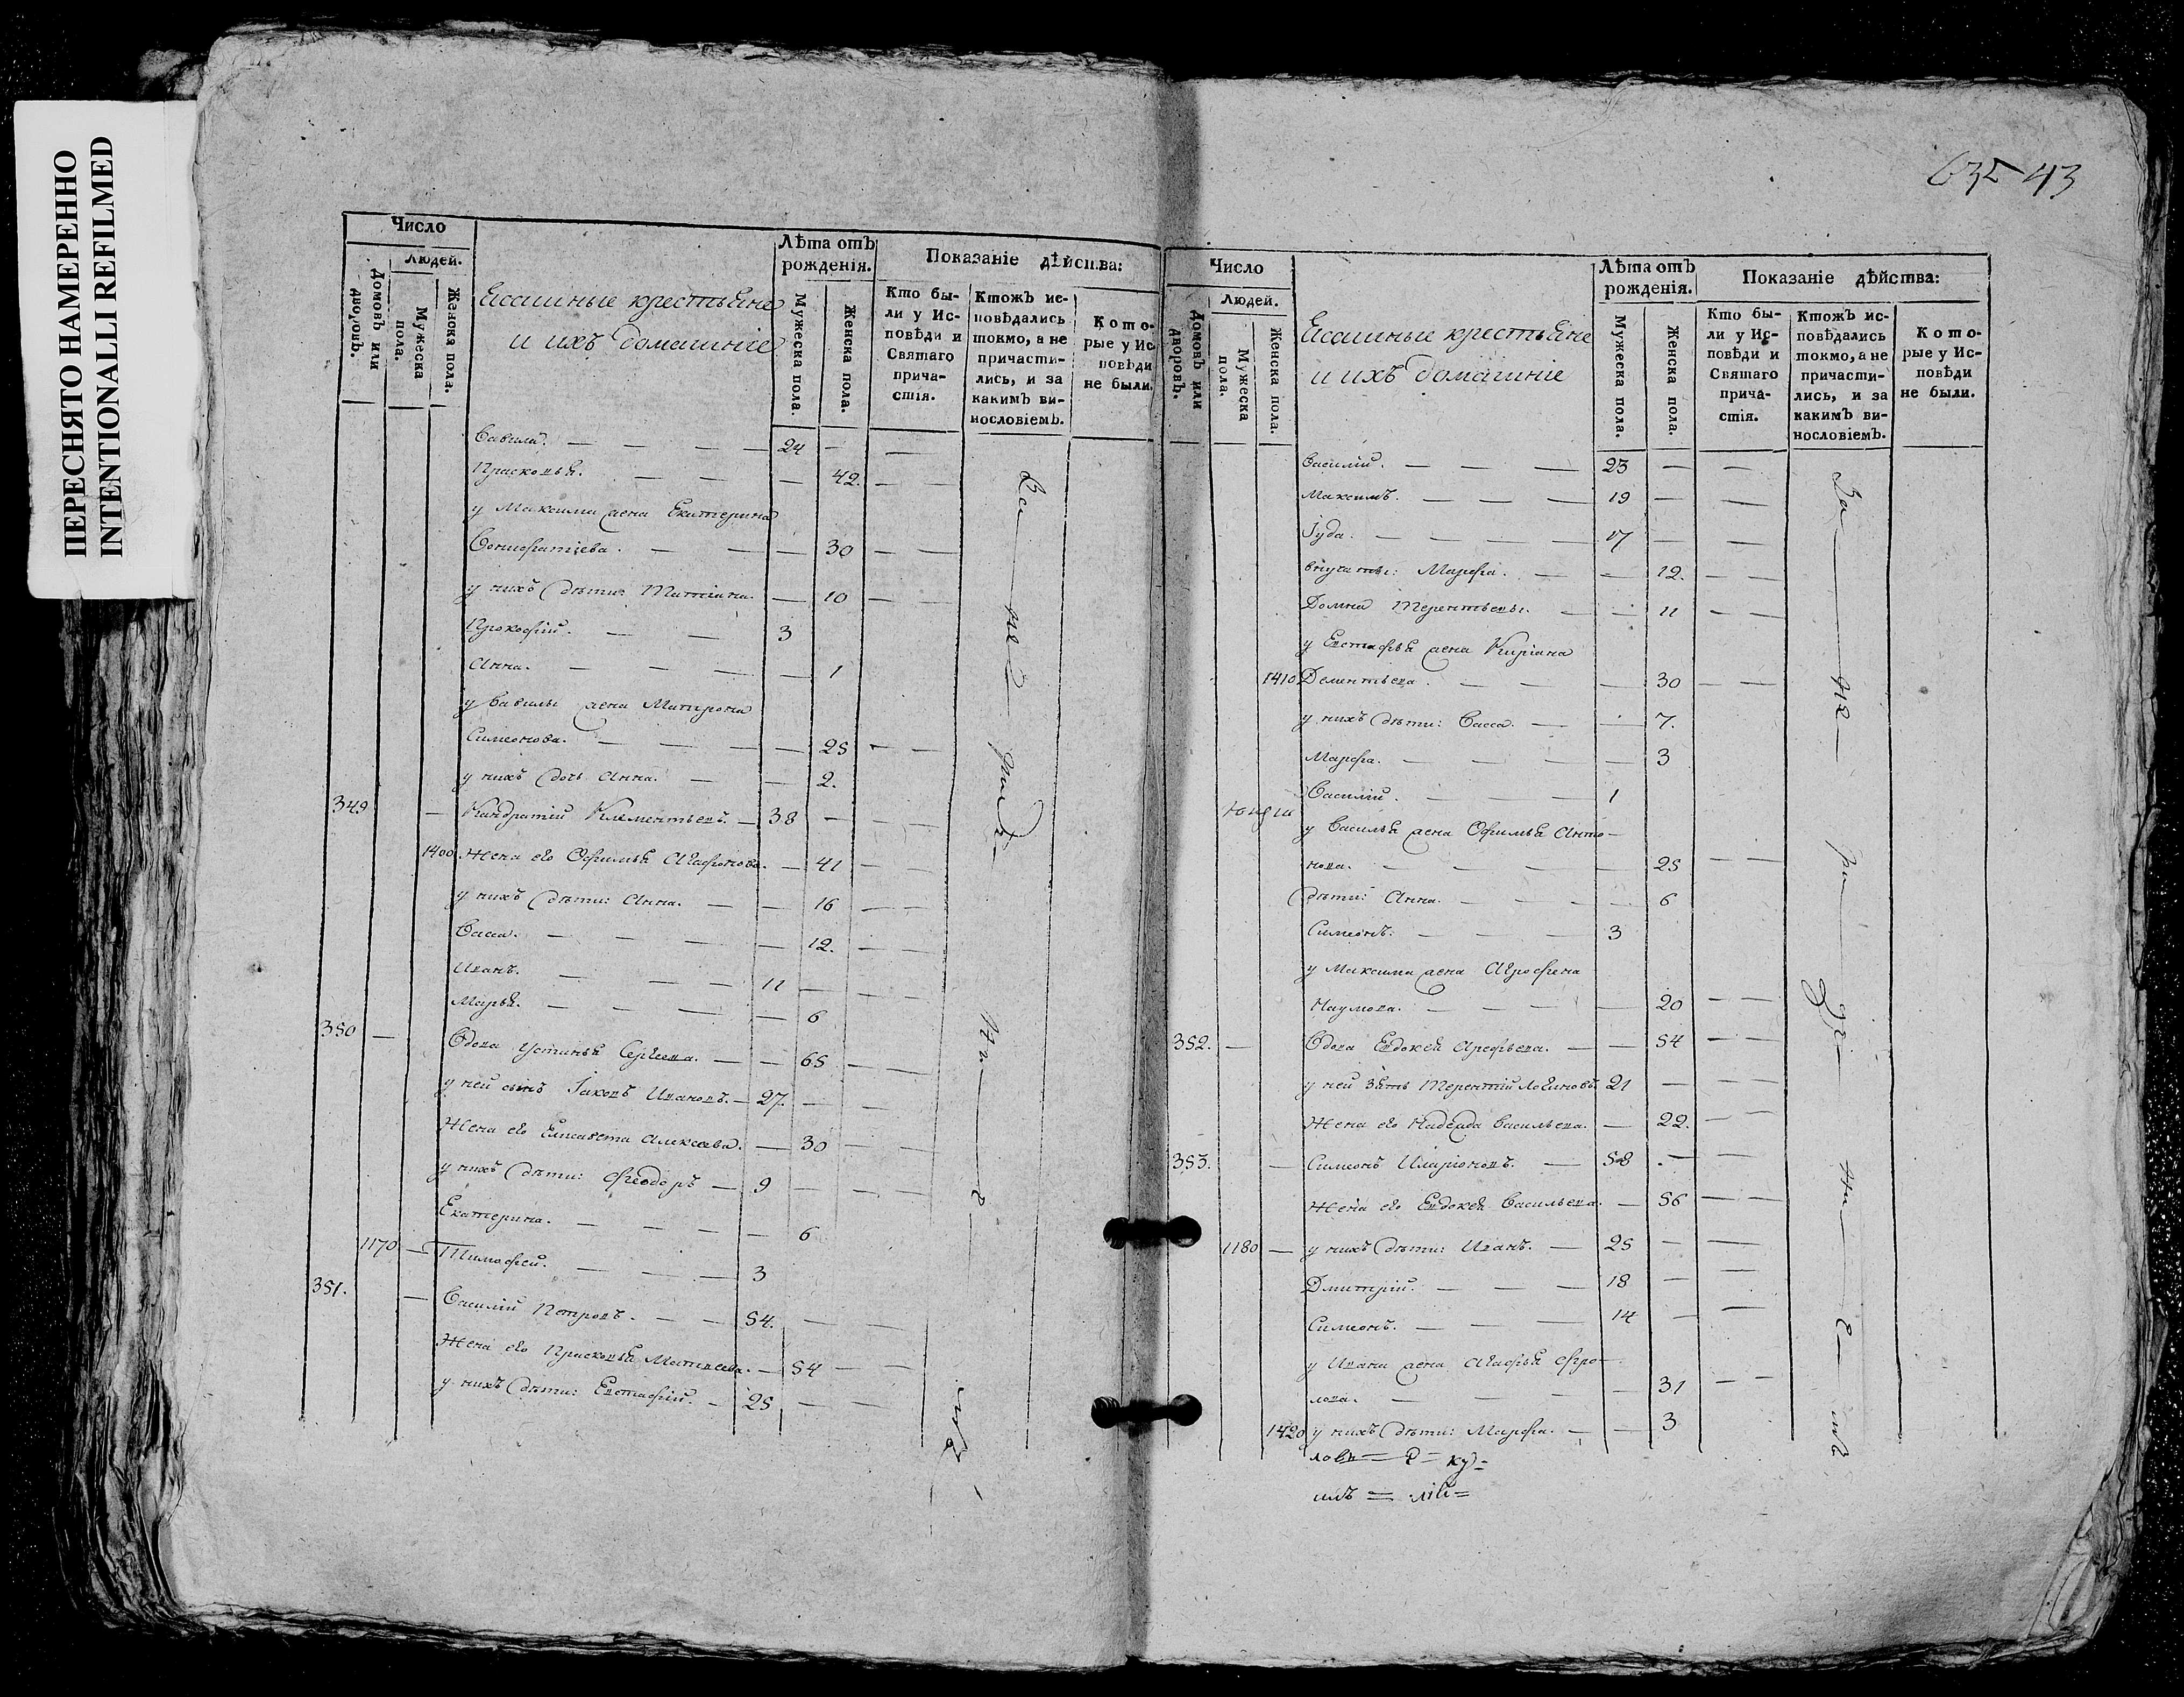 ПЕРЕСНЯТО НАМЕРЕННО
INTENTIONALLI REFILMED
43
Число
Людей.
Домовъ или дворовъ.
Мужеска пола.
Женска пола.
Ясашные крестьяне
и ихъ домашніе
Лѣта отъ рожденія.
Мужеска пола.
Женска пола.
Показаніе дѣйства:
Кто были у Исповѣди и Святаго причастія.
Ктожъ исповѣдались токмо, а не причастились, и за какимъ винословіемъ.
Которые у Исповѣди не были.
Вавила. — 24
Прасковья. — 42.
у Максима жена Екатерина
Бонифатіева. — 30
у нихъ дѣти: Татіана. — 10
Прокофій. — 3
Анна. — 1
у Вавилы жена Матрона
Симеонова. — 25
у нихъ дочь Анна. — 2.
349 Кандратій Клементьевъ. — 38
1400 Жена его Офимья Агафонова. — 41
у нихъ дѣти: Анна. — 16
Васса. — 12.
Иванъ. — 11
Марья. — 6
350 Вдова Устинья Сергеева. — 65
у ней сынъ Іаковъ Ивановъ. — 27.
Жена его Елисавета Алексеева. — 30
у нихъ дѣти: Феодоръ — 9
Екатерина. — 6
1170 Тимофей. — 3
351. Василій Петровъ. — 54.
Жена его Прасковья Матвеева. — 54
у нихъ дѣти: Евстафій. — 25
Число
Людей.
Домовъ или дворовъ.
Мужеска пола.
Женска пола.
Ясашные крестьяне
и ихъ домашніе
Лѣта отъ рожденія.
Мужеска пола.
Женска пола.
Показаніе дѣйства:
Кто были у Исповѣди и Святаго причастія.
Ктожъ исповѣдались токмо, а не причастились, и за какимъ винословіемъ.
Которые у Исповѣди не были.
Василій. — 23
Максимъ. — 19
Іуда. — 17
внучаты: Марфа. — 12.
Домна Терентьевы. — 11
у Евстафья жена Киріана
1410 Дементьева. — 30
у нихъ дѣти: Васса. — 7.
Марфа. — 3
Василій. — 1
у Василья жена Офимья Анто-
нова. — 25
дѣти: Анна. — 6
Симеонъ. — 3
у Максима жена Агрофена
Наумова. — 20
352. Вдова Евдокея Арефьева. — 54
у ней зять Терентій Логиновъ 21
Жена его Надежда Васильева. — 22.
353. Симеонъ Иларіоновъ. — 58
Жена его Евдокея Васильева. — 56
1180 у нихъ дѣти: Иванъ. — 25
Дмитрій. — 18
Симеонъ. — 14
у Ивана жена Агафья Фро-
лова. — 31
1420 у нихъ дѣти: Марфа. — 3